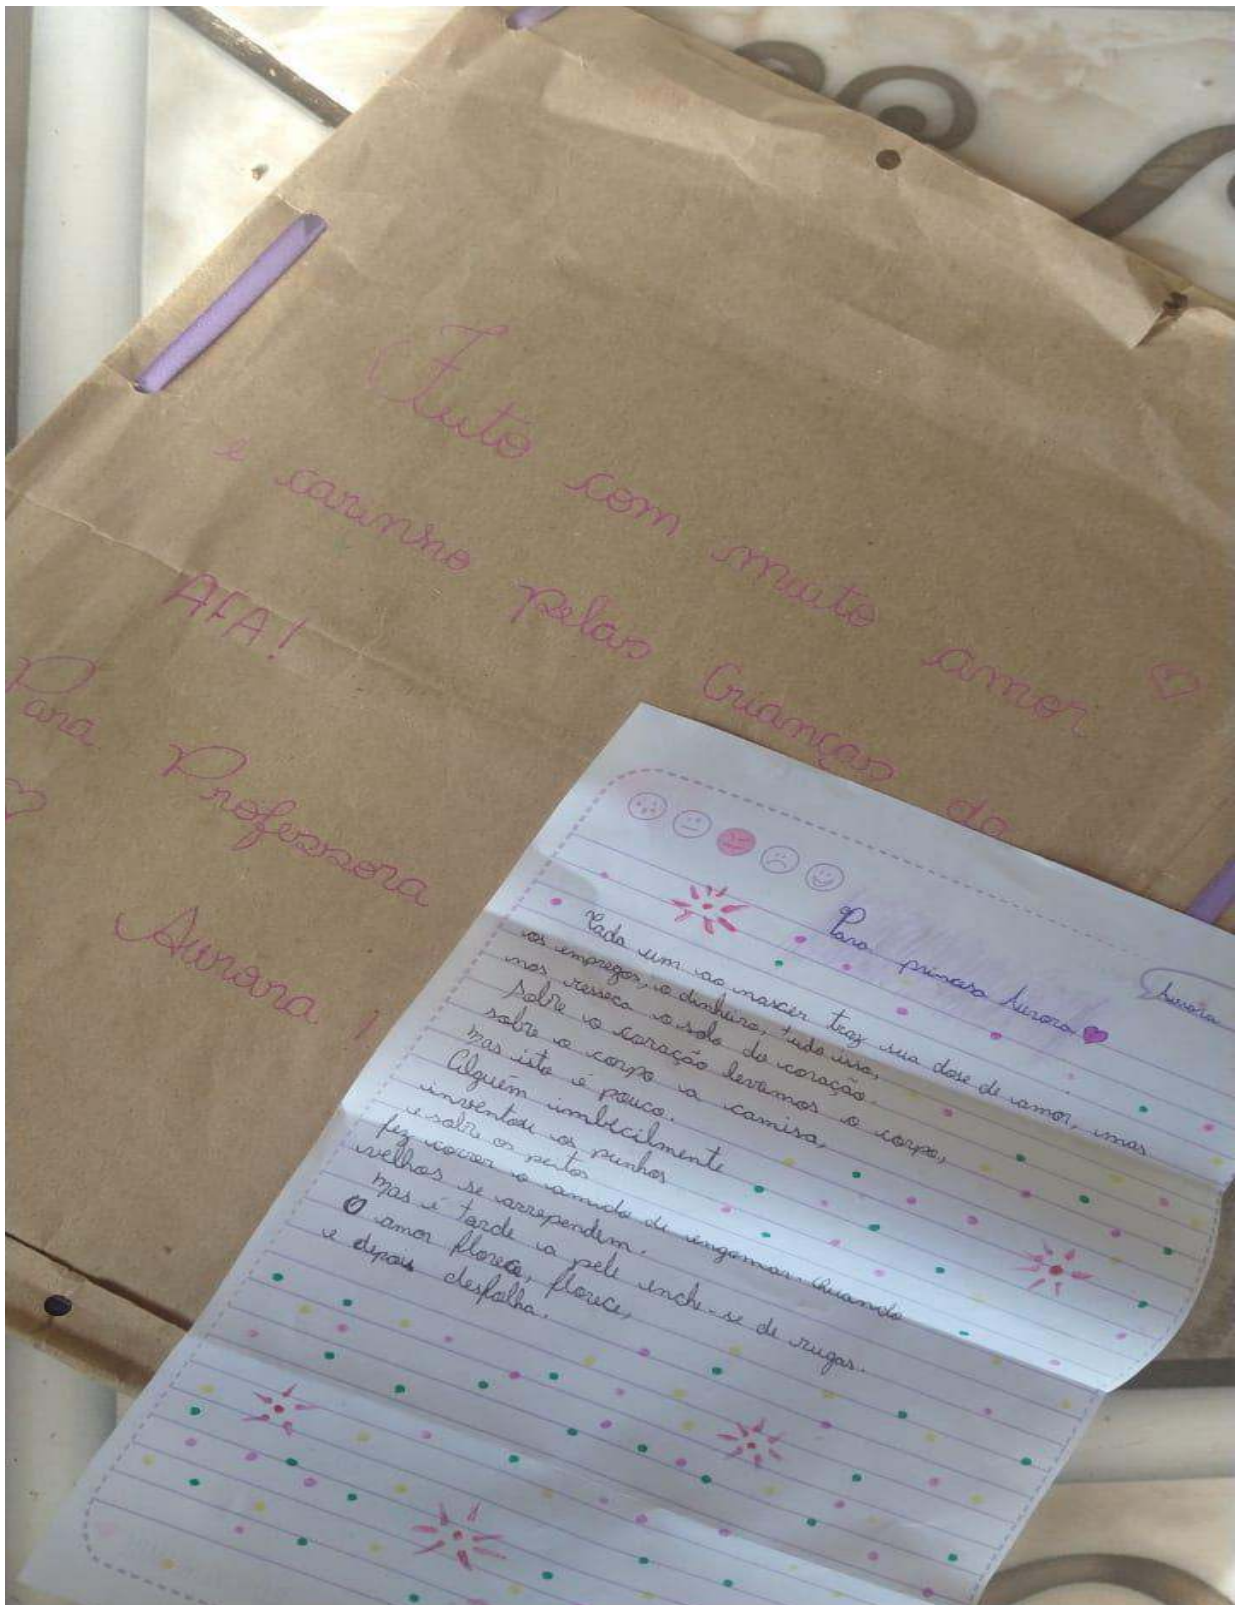 Feito com muito amor
e carinho pelas Crianças da
AFA!
Para Professora
Aurora!
Para princesa Aurora
Aurora
Cada um ao nascer traz sua dose de amor, mas
os empregos, o dinheiro, tudo isso,
nos resseca o solo do coração.
Sobre o coração levamos o corpo,
sobre o corpo a camisa,
mas isto é pouco.
Alguém imbecilmente
inventou os punhos
e sobre os peitos
fez correr o amido de engomar. Quando
velhos se arrependem.
mas é tarde a pele enche-se de rugas.
O amor florece, florece,
e depois desfolha.